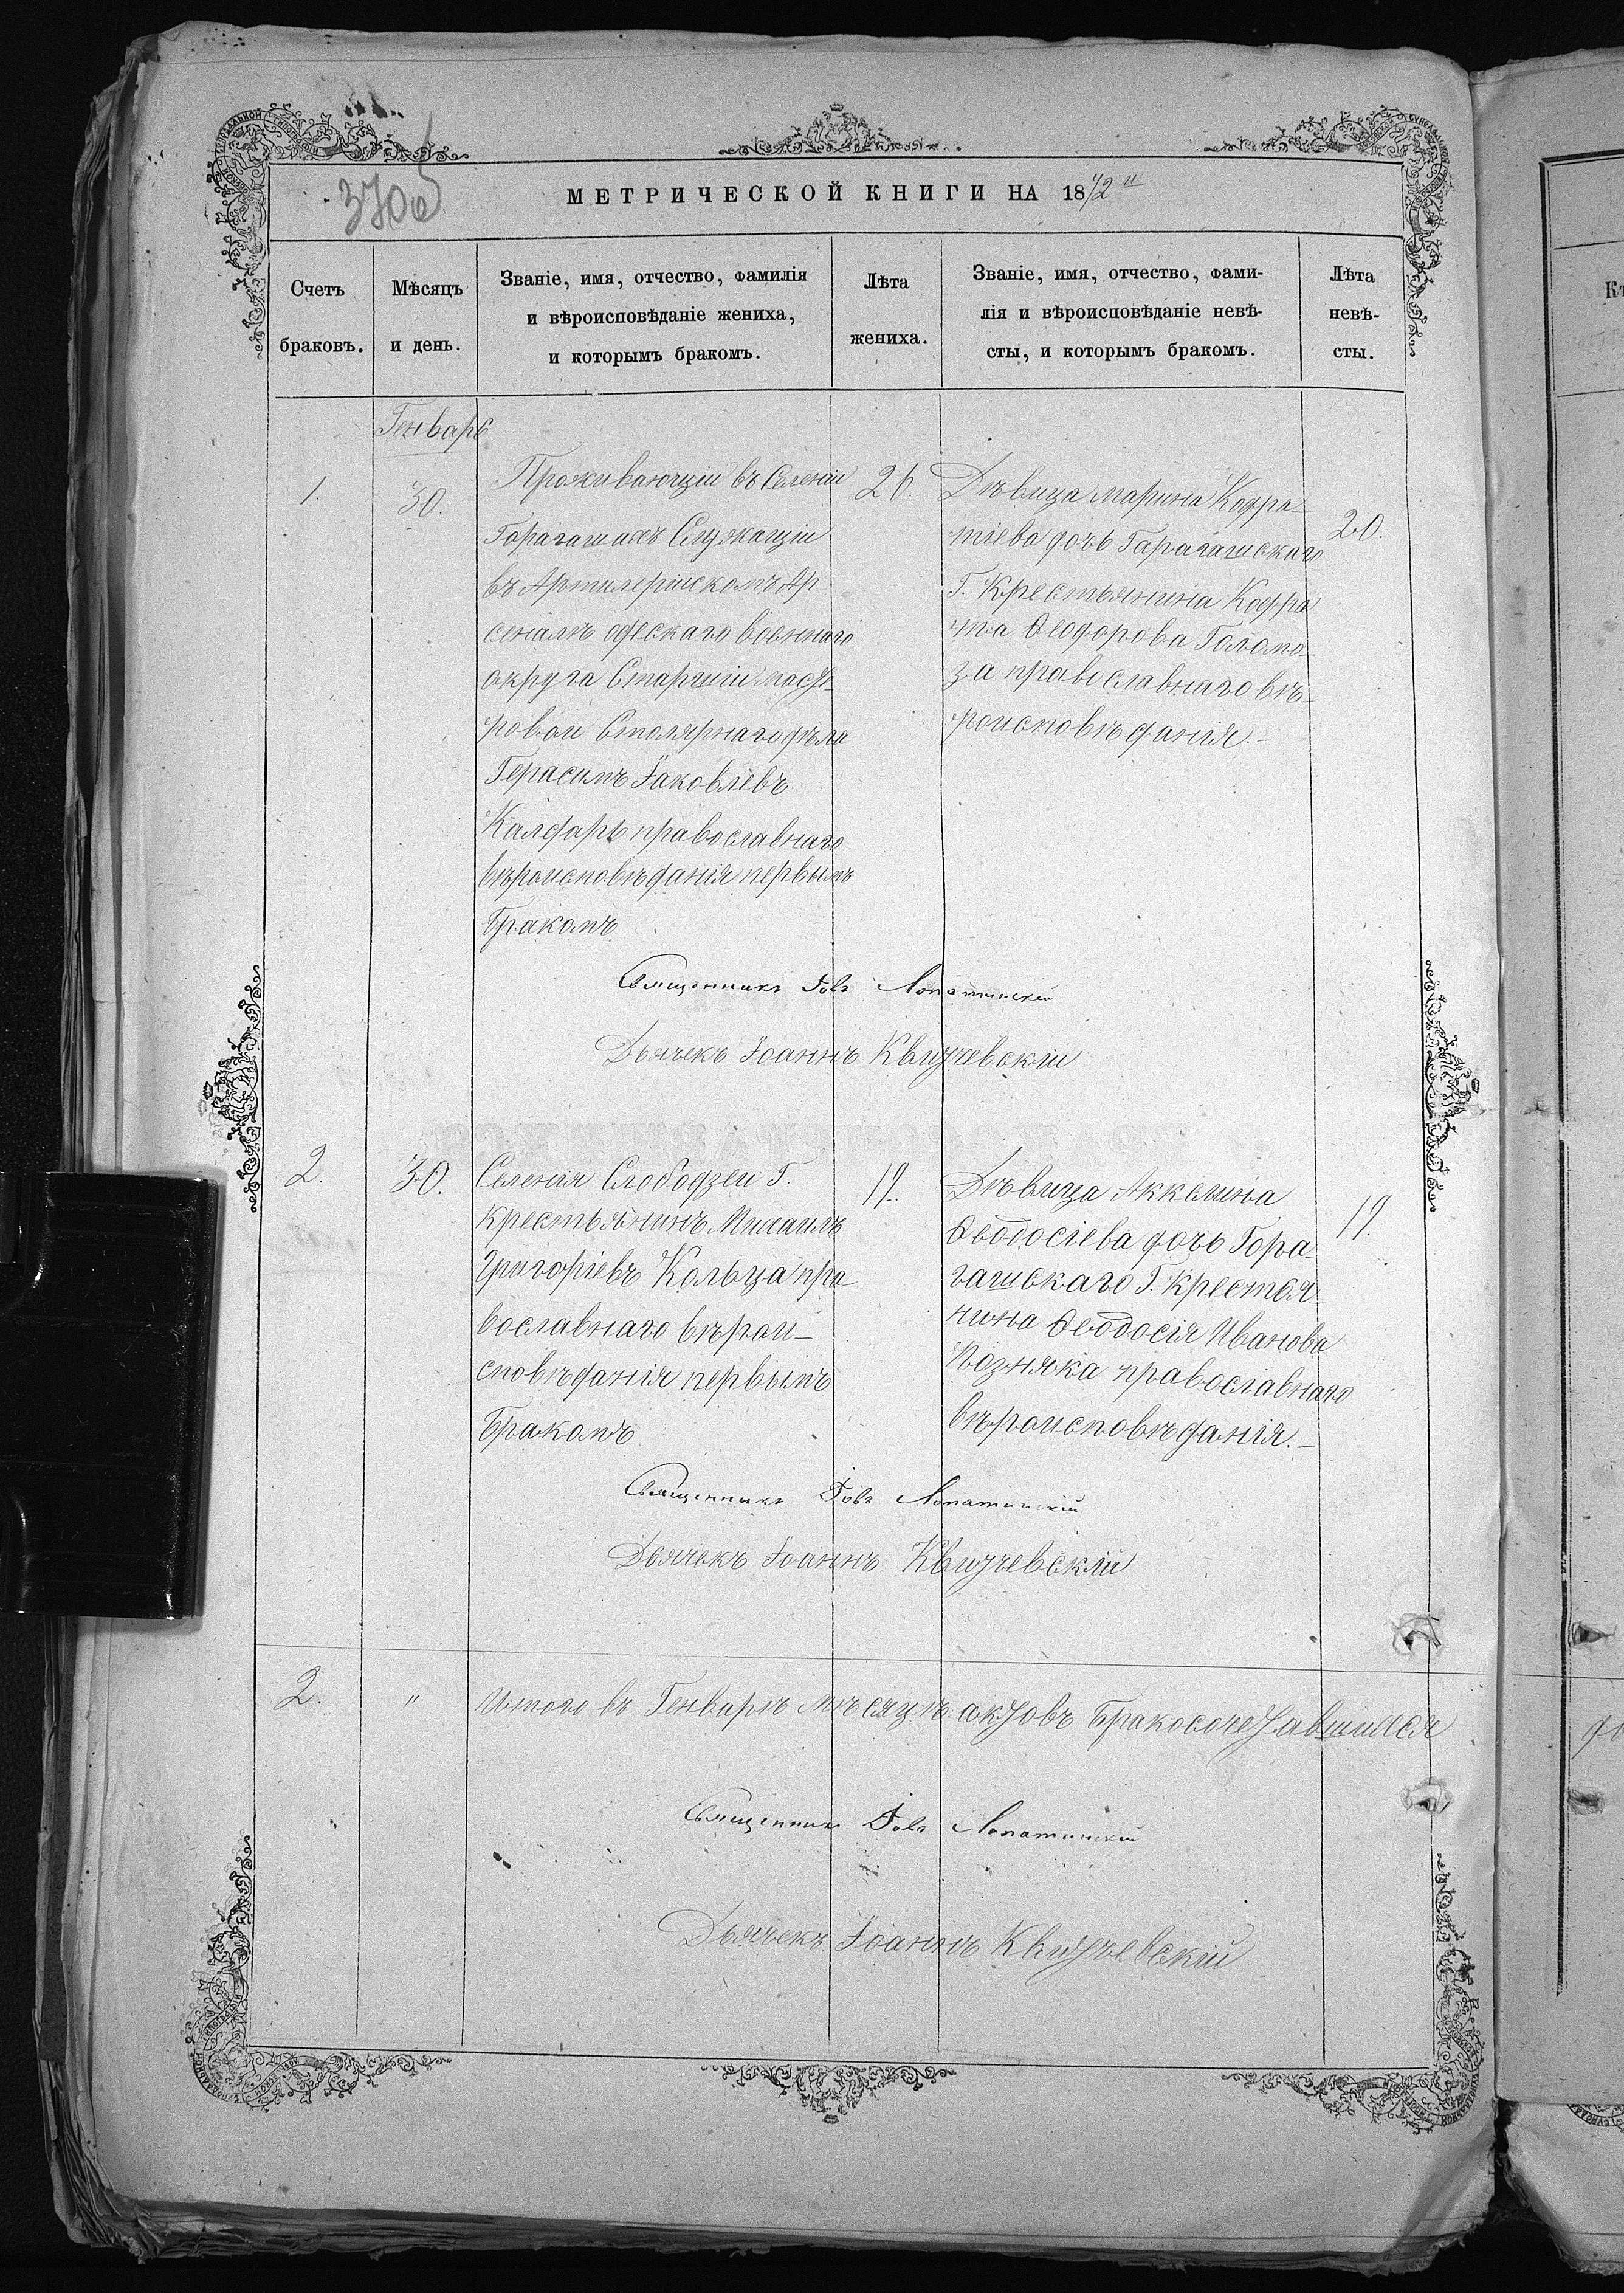 370об
МЕТРИЧЕСКОЙ КНИГИ НА 1872 й
Счетъ
браковъ.
Мѣсяцъ
и день.
Званіе, имя, отчество, фамилія
и вѣроисповѣданіе жениха,
и которымъ бракомъ.
Лѣта
жениха.
Званіе, имя, отчество, фами-
лія и вѣроисповѣданіе невѣ-
сты, и которымъ бракомъ.
Лѣта
невѣ-
сты.
Генварь
1.
30.
Проживающій въ Селеніи
Горагашахъ Служащій
въ Артилерійскомъ Ар
сеналѣ одескаго военнаго
округа Старшій масте-
ровой Столярнаго дѣла
Герасимъ Іаковлевъ
Калфарь православнаго
вѣроисповѣданія первымъ
Бракомъ
26.
Дѣвица Марина Кодра-
тіева дочь Гарагашскаго
Г. Крестьянина Кодра
та Ѳеодорова Голомо-
за православнаго вѣ-
роисповѣданія.-
20.
Священникъ Іовъ Лопатинскій
Дьячекъ Іоаннъ Квитчевскій
2.
30.
Селенія Слободзеи Г.
крестьянинъ Михаилъ
Григоріевъ Кольца пра
вославнаго вѣрои-
сповѣданія первымъ
Бракомъ
19.
Дѣвица Аккелина
Ѳеодосіева дочь Гора
гашскаго Г. крестья-
нина Ѳеодосія Иванова
Позняка православнаго
вѣроисповѣданія.-
19.
Священникъ Іовъ Лопатинскій
Дьячекъ Іоаннъ Квитчевскій
2.
"
Итого въ Генварѣ мѣсяцѣ актовъ Бракосочетавшихся
Священникъ Іовъ Лопатинскій
Дьячекъ Іоаннъ Квитчевскій